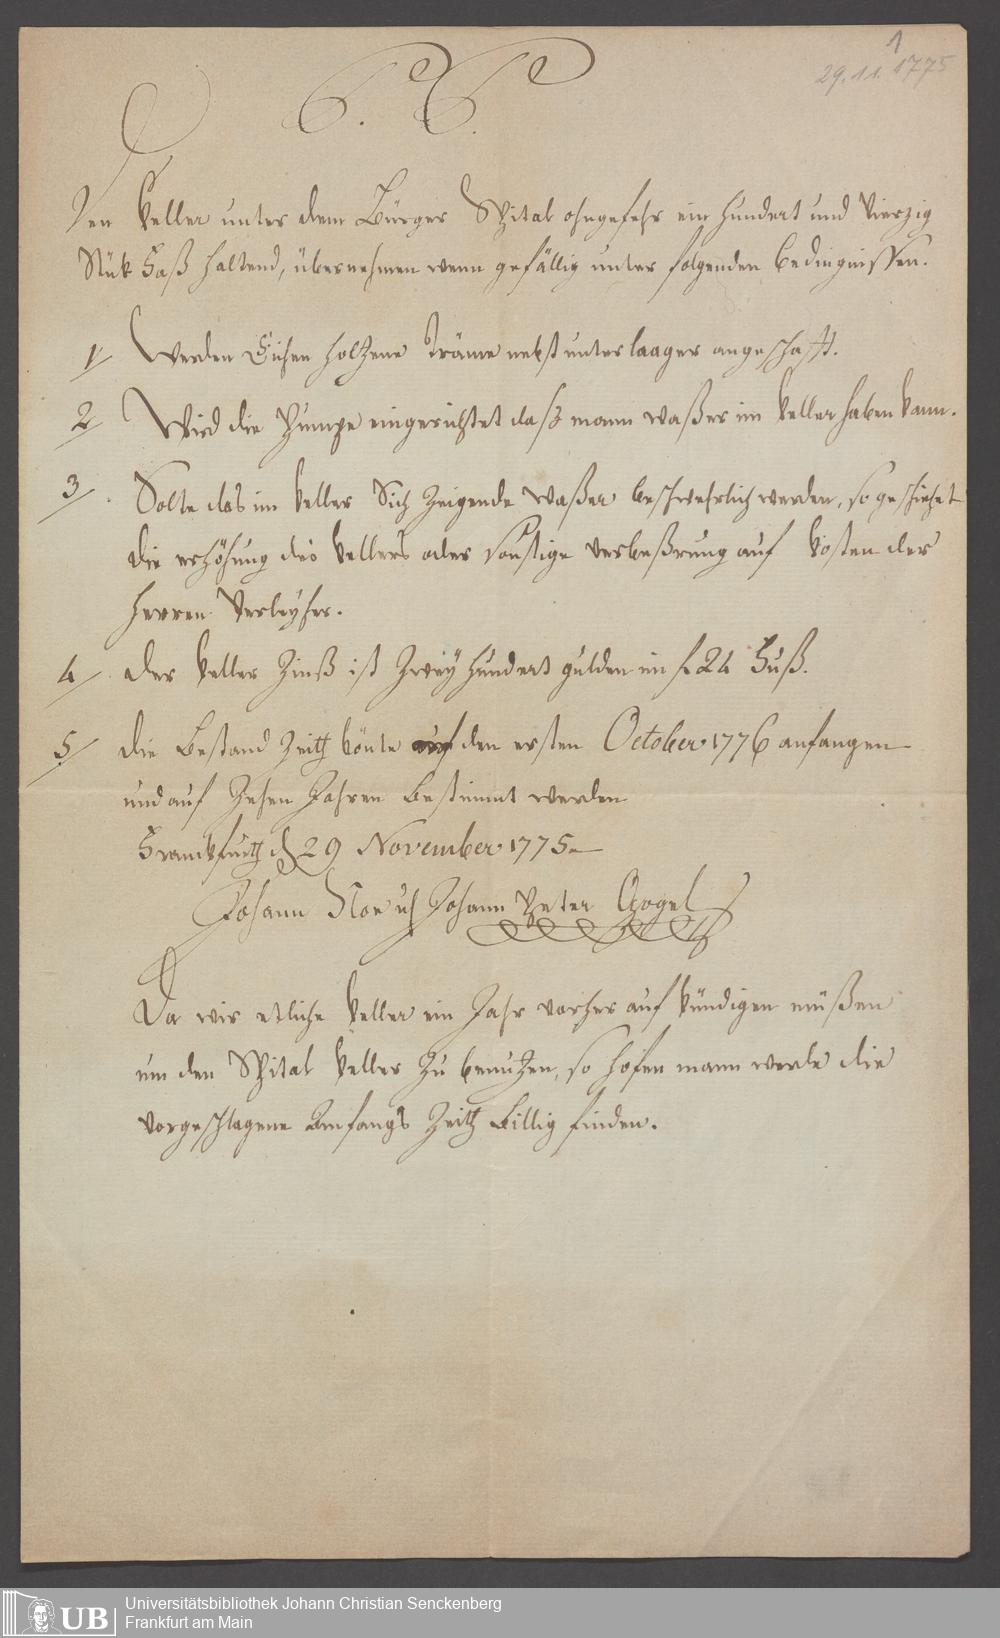 1
29.11.1775
Den Keller unter dem Bürger Spital ohngefehr ein hundert und Vierzig
Stük Faß haltend, übernehmen wenn gefällig unter folgenden bedingnissen.
1/ Werden Eichen holtzene Träme nebst unter laager angeschafft.
2/ Wird die Pumpe eingerichtet daß mann waßer im Keller haben kann.
3/ Solte das im Keller Sich Zeigende Waßer beschwehrlich werden, so geschiehet
die erhöhung des Kellers oder sonstige verbeßrung auf Kosten der
Herren Verleyher.
4/ der Keller Zinß ist Zwey hundert gulden im f 24 Fuß.
5/ die Bestand Zeith könte den ersten October 1776 anfangen
und auf Zehen Jahren bestimmt werden
Franckfurth d 29 November 1775
Johann Noe u Johann Peter Gogel
Da wir etliche Keller ein Jahr vorher auf kündigen müßen
um den Spital Keller zu benutzen, so hofen mann werde die
vorgeschlagene Anfangs Zeith billig finden.
UB
Universitätsbibliothek Johann Christian Senckenberg
Frankfurt am Main